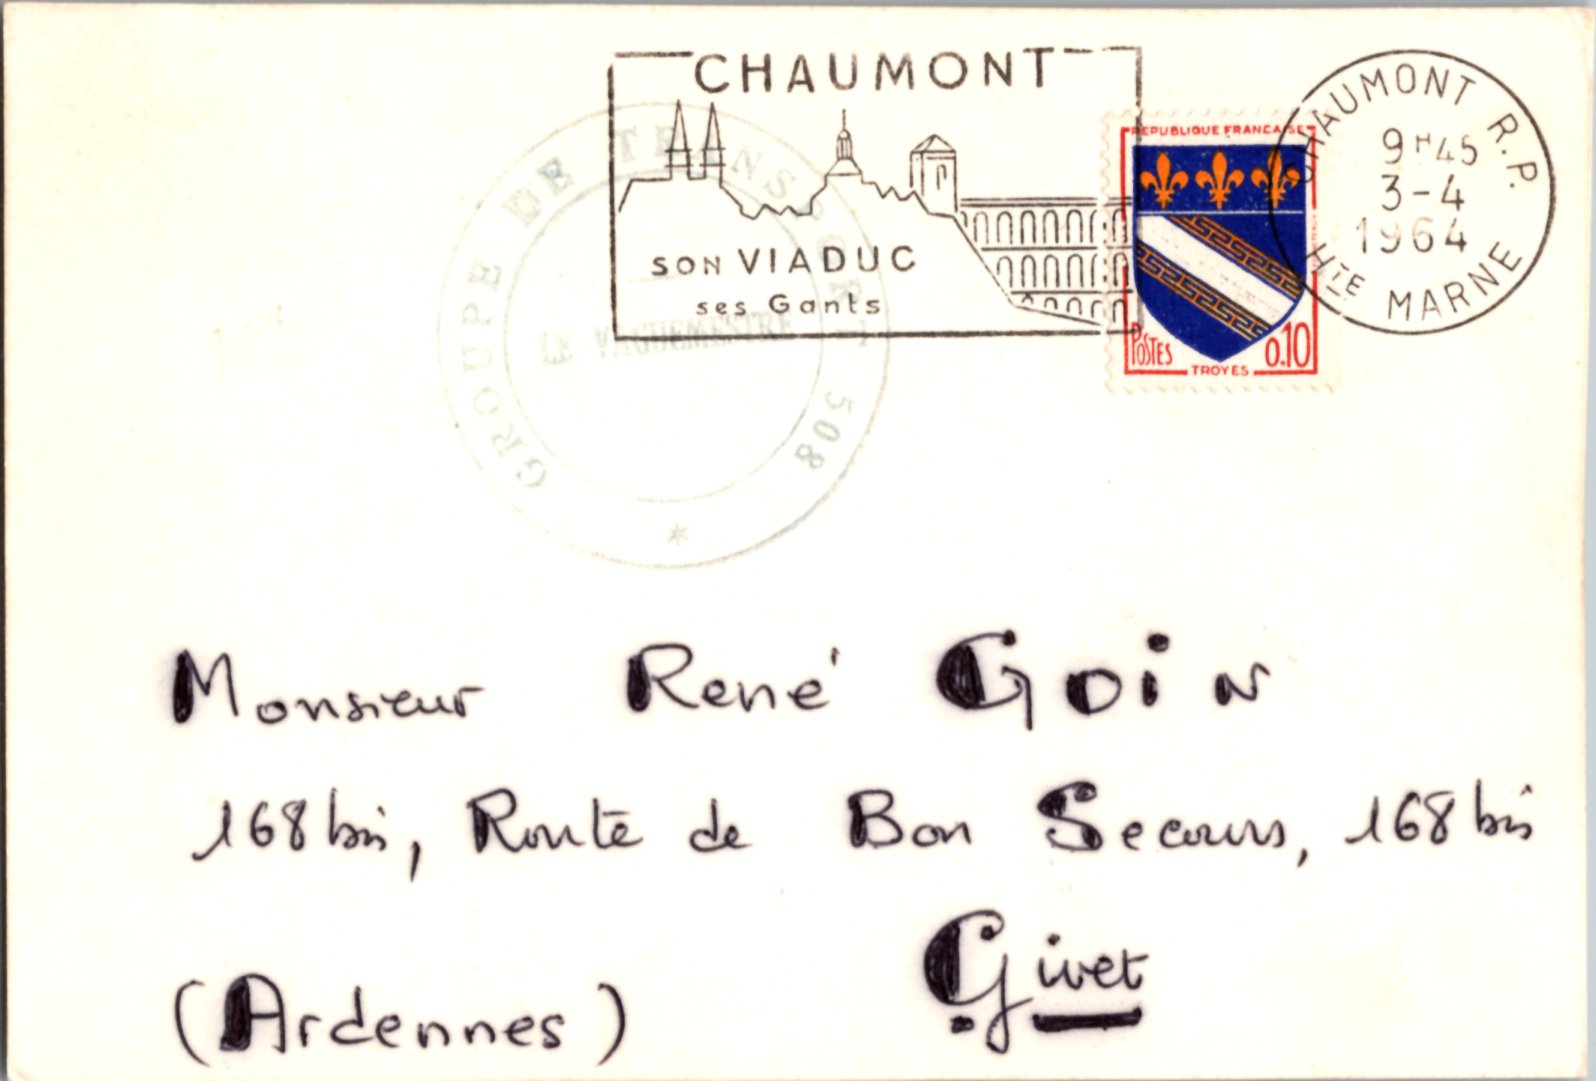 CHAUMONT
SON VIADUC
ses Gants
GROUPE DE TRANSPORT 508
LE VAGUEMESTRE
*
REPUBLIQUE FRANCAISE
POSTES
0,10
TROYES
CHAUMONT R.P.
9H45
3-4
1964
HTE MARNE
Monsieur René GOiN
168 bis, Route de Bon Secours, 168 bis
Givet
(Ardennes)